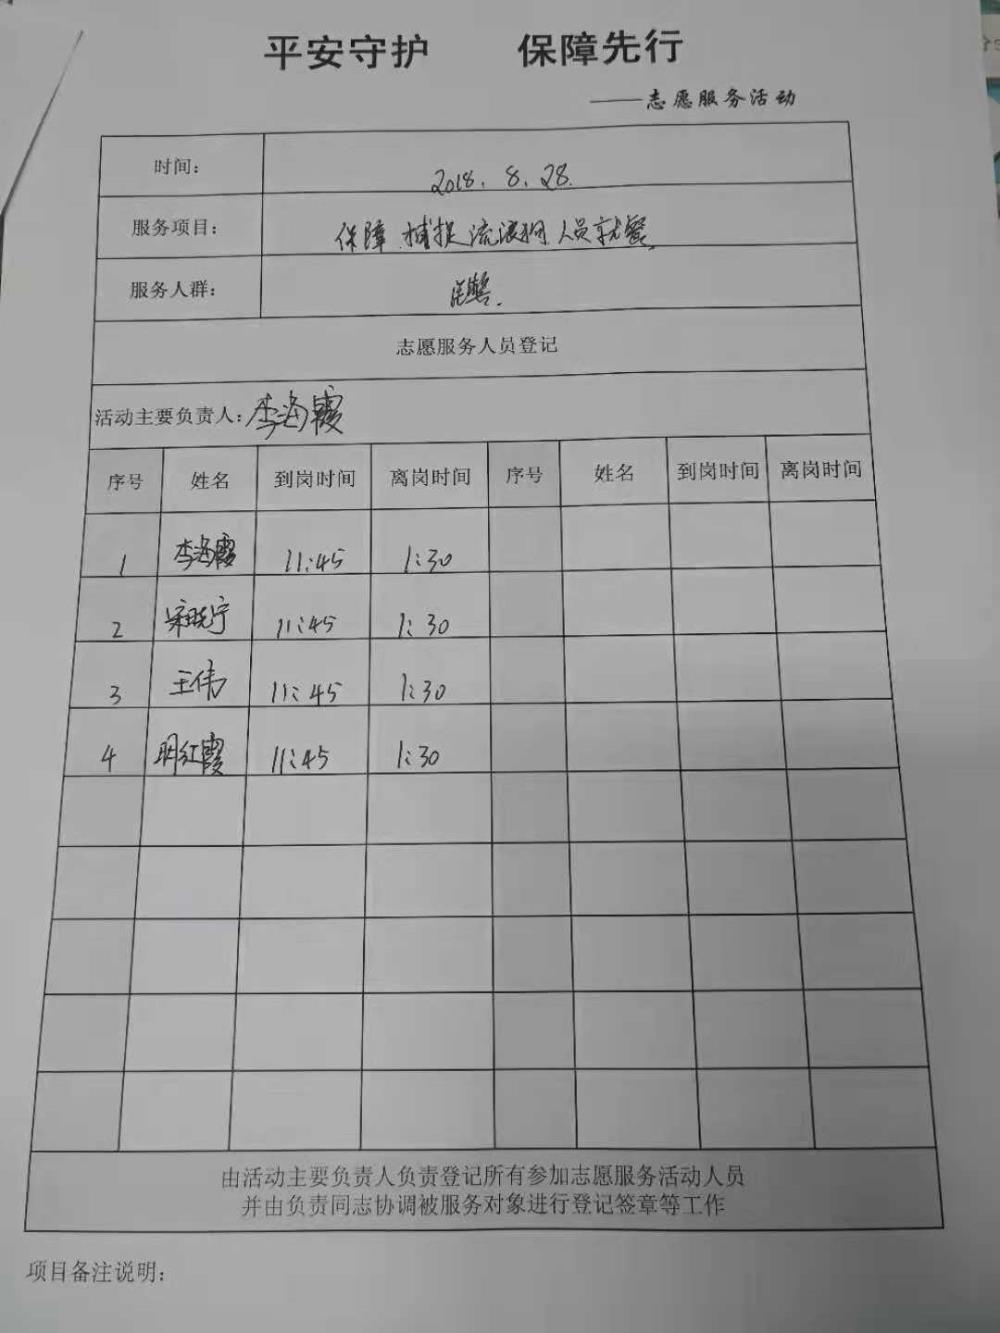 平安守护 保障先行
——志愿服务活动
时间： 2018. 8. 28.
服务项目： 保障 捕捉流浪狗人员就餐.
服务人群： 民警.
志愿服务人员登记
活动主要负责人：李海霞
序号 姓名 到岗时间 离岗时间 序号 姓名 到岗时间 离岗时间
1 李海霞 11:45 1:30
2 宋晓宁 11:45 1:30
3 王伟 11:45 1:30
4 明红霞 11:45 1:30
由活动主要负责人负责登记所有参加志愿服务活动人员
并由负责同志协调被服务对象进行登记签章等工作
项目备注说明：